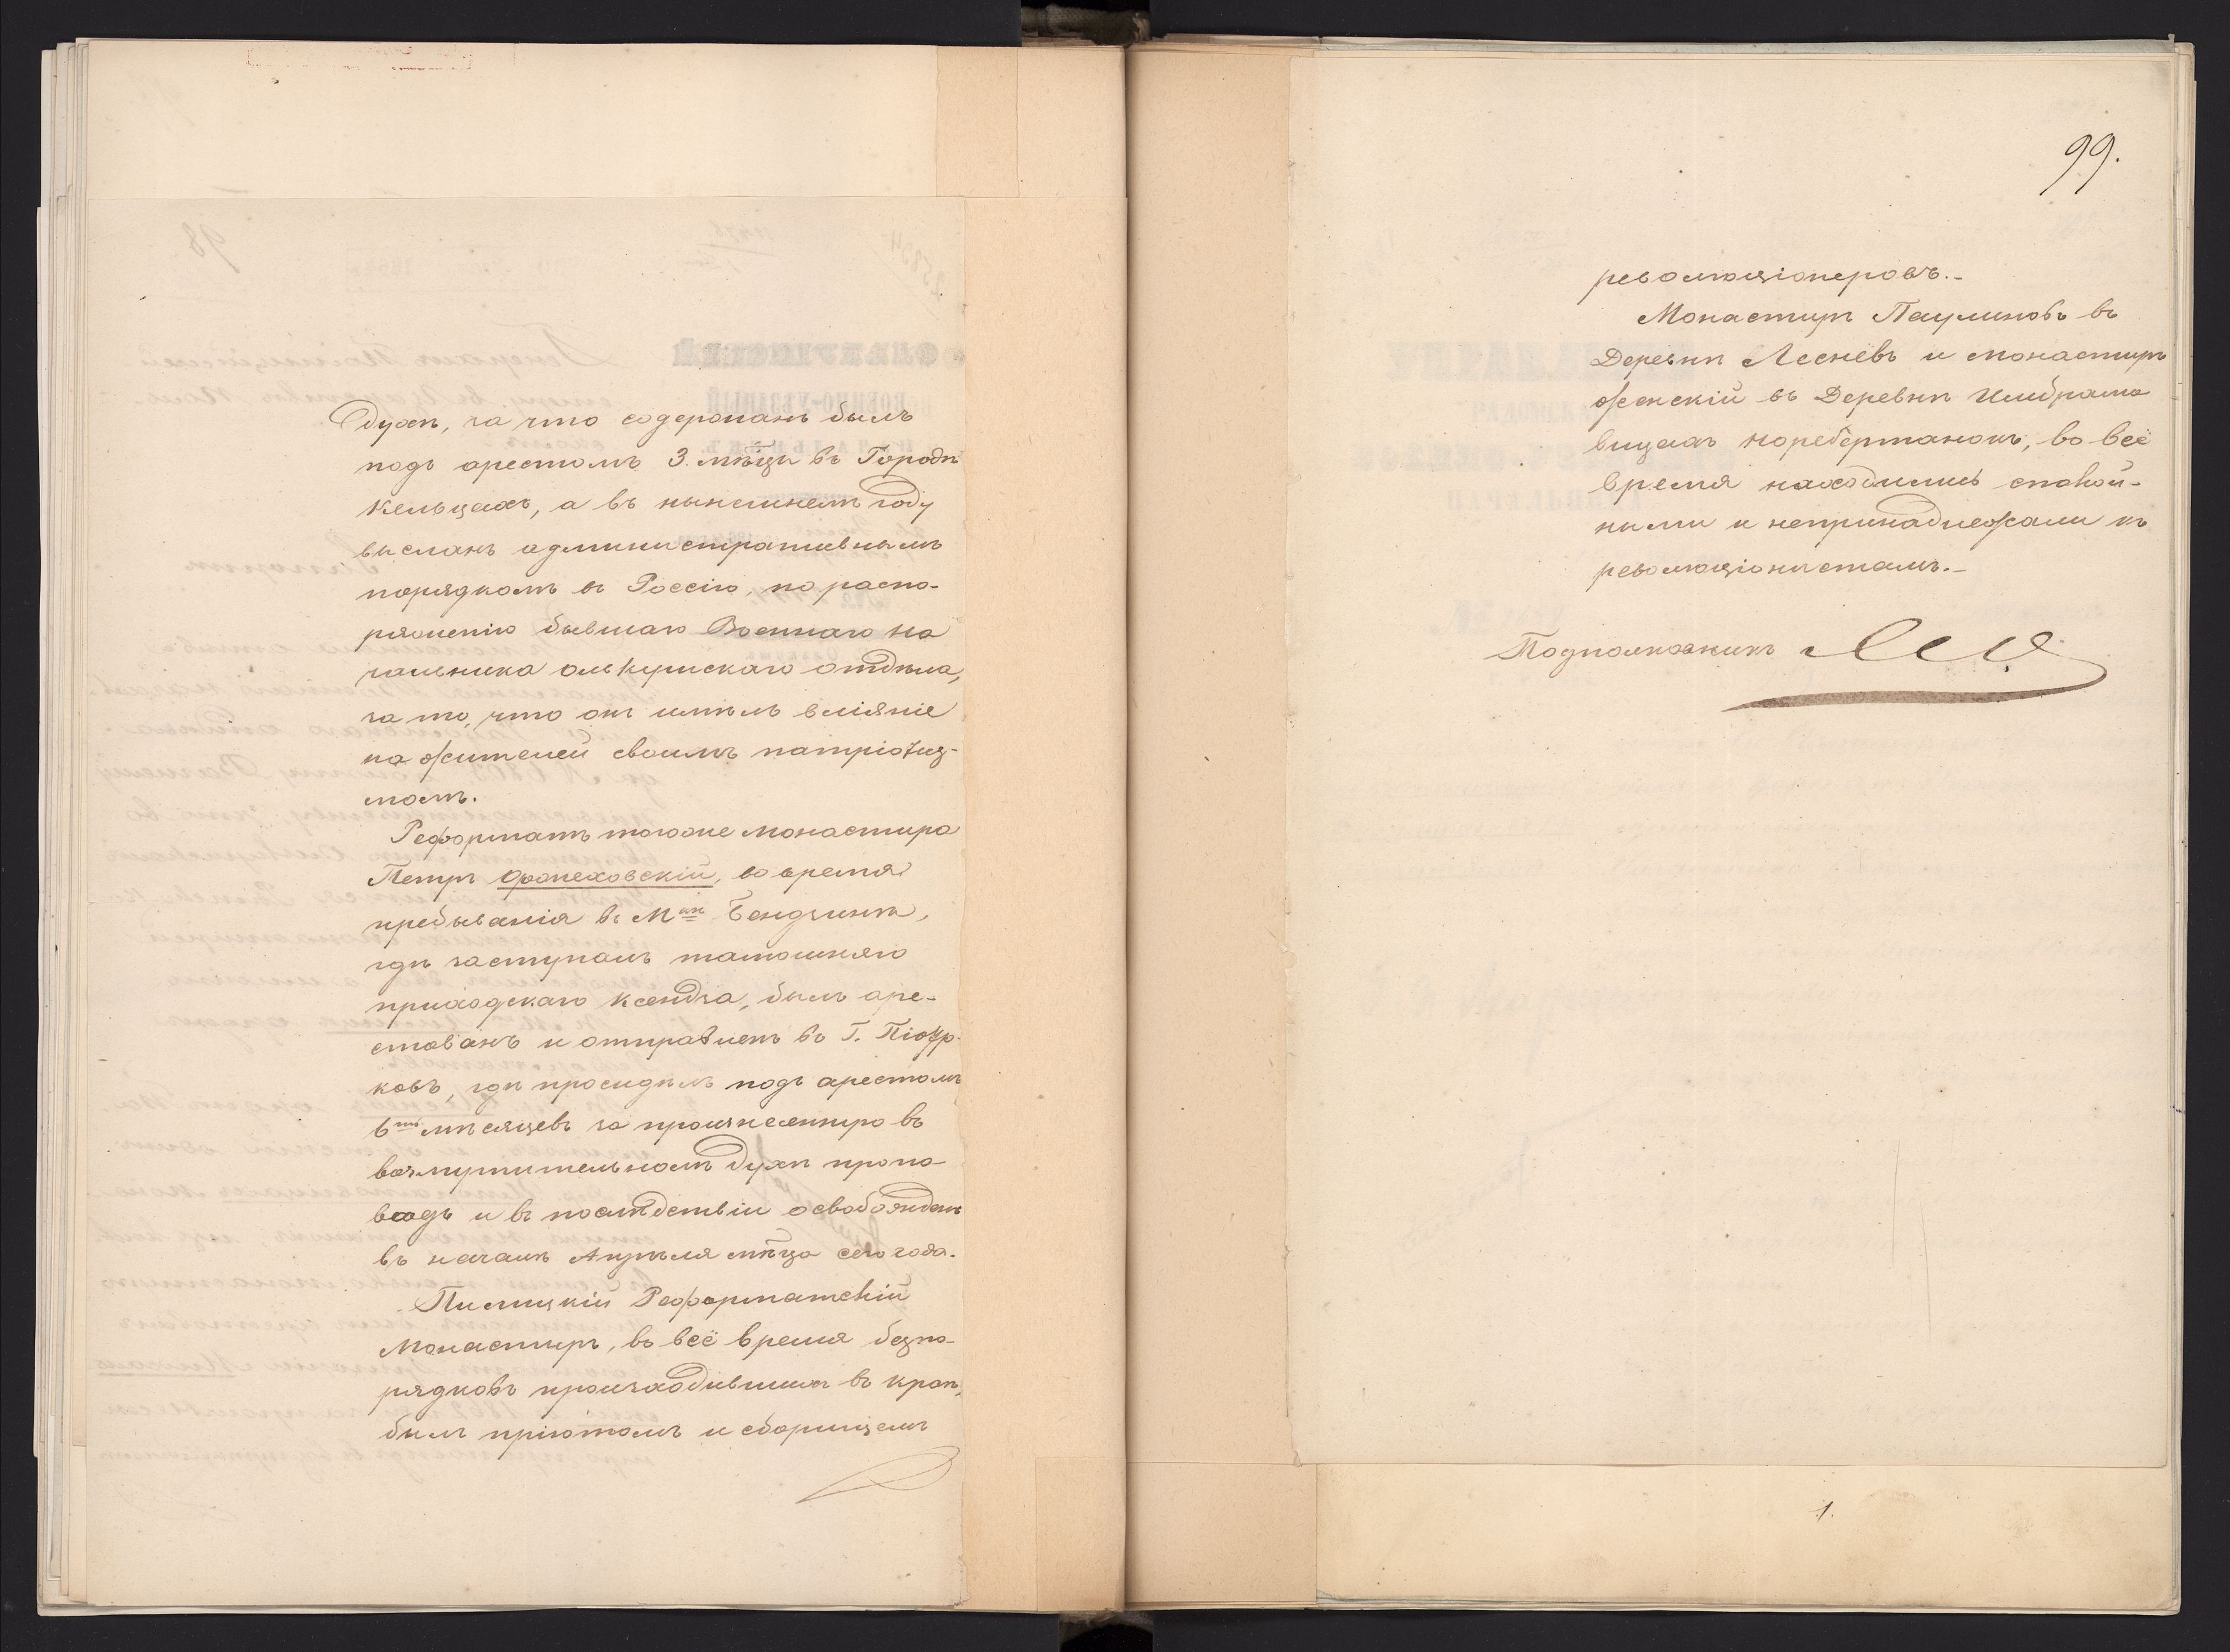 духѣ, за что содержанъ былъ
подъ арестомъ 3. мѣцы въ Городѣ
Кельцахъ, а въ нынешнемъ году
высланъ административнымъ
порядкомъ въ Россію, по распо-
ряженію бывшаго Военнаго На
чальника Олькушскаго отдѣла,
за то, что онъ имѣлъ вліяніе
на жителей своимъ патріотиз-
момъ.
Реформатъ тогоже монастыра
Петръ Оржеховскій, во время
пребыванія въ Мкѣ Бендзинѣ,
гдѣ заступалъ тамошняго
приходскаго Ксендза, былъ аре-
стованъ и отправленъ въ Г. Піотр-
ковъ, гдѣ просидѣлъ подъ арестомъ
6ть мѣсяцевъ за произнесенную въ
возмутительномъ духѣ пропо-
ведь и въ послѣдствіи освобожденъ
въ началѣ Апрѣля мѣца сего года.
Пилицкій Реформатскій
Монастырь, во всё время безпо-
рядковъ происходившихъ въ краѣ,
былъ пріютомъ и сборищемъ
99.
революціонеровъ.-
Монастырь Паулиновъ въ
Деревни Лесневъ и монастырь
женскій въ Деревни Имбрамо
вицахъ Норебертанокъ, во всё
время находились спокой-
ными и непринадлежали къ
революціонистамъ.-
Подполковникъ
1.